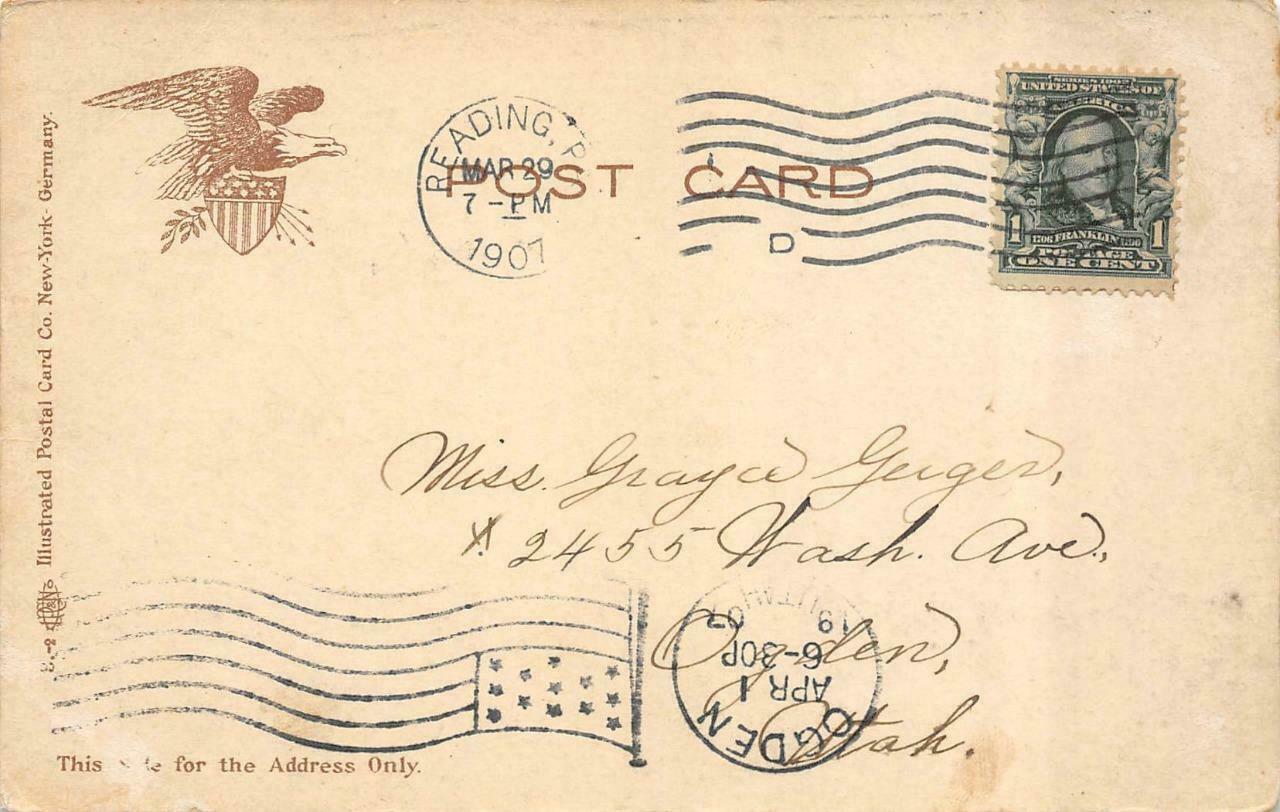 Illustrated Postal Card Co. New-York- Germany.
READING, P
MAR 29
7-PM
1907
POST CARD
D
SERIES 1902
UNITED STATES OF
AMERICA
1 1706 FRANKLIN 1790 1
POSTAGE
ONE CENT
Miss. Grayce Geiger,
2455 Wash. Ave.,
Ogden,
Utah.
OGDEN UTAH
APR 1
6-30P
19 07
This for the Address Only.